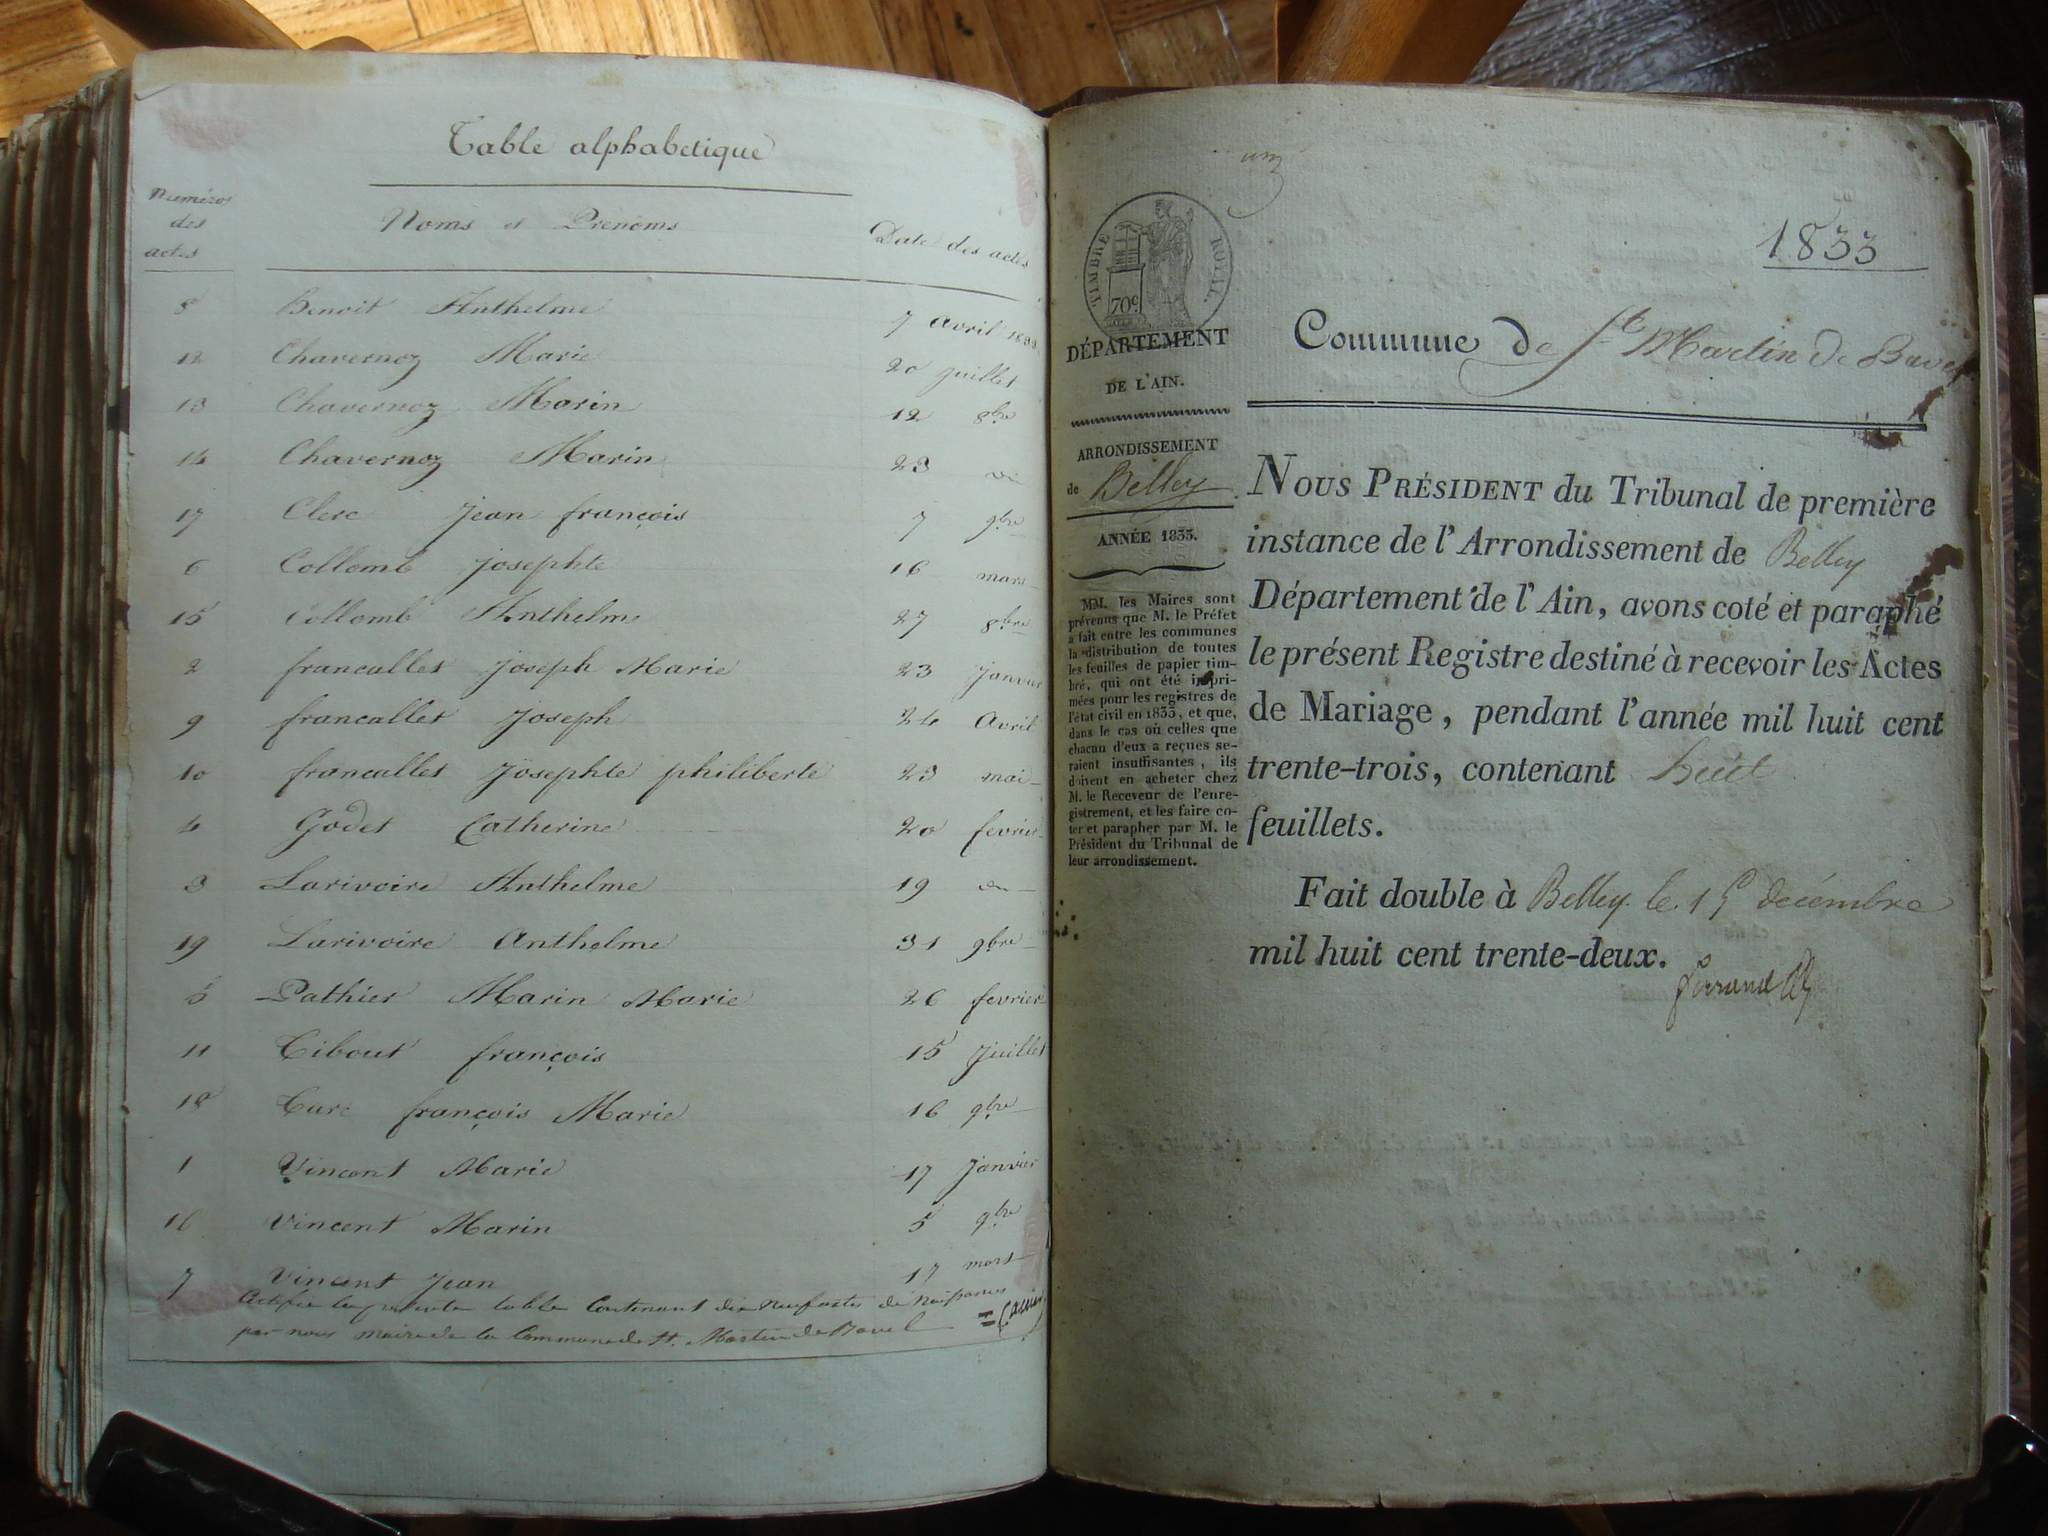 Table alphabetique
Numéros
des
actes
Noms et Prénoms
Date des actes
8 Benoit Anthelme 7 avril 1833
12 Chavernoz Marie 20 juillet
13 Chavernoz Marin 12 8bre
14 Chavernoz Marin 23
17 Clerc Jean françois 7 9bre
6 Collomb josephte 16 mars
15 Collomb Anthelme 27 8bre
2 francallet joseph Marie 23 janvier
9 francallet joseph 24 Avril
10 francallet josephte philiberte 23 mai
4 Godet Catherine 20 fevrier
3 Larivoire Anthelme 19
19 Larivoire Anthelme 31 9bre
5 Pathier Marin Marie 26 fevrier
11 Tibout françois 15 juillet
18 Curt françois Marie 16 9bre
1 Vincent Marie 17 janvier
16 Vincent Marin 5 9bre
7 Vincent Jean 17 mars
Certifié la présente table Contenant dix neuf actes de Naissances
par nous maire de la Commune de St. Martin de Bavel
1833
TIMBRE ROYAL.
70c
DÉPARTEMENT
DE L'AIN.
ARRONDISSEMENT
de Belley
ANNÉE 1833.
MM. les Maires sont
prévenus que M. le Préfet
a fait entre les communes
la distribution de toutes
les feuilles de papier tim-
bré, qui ont été impri-
mées pour les registres de
l'état civil en 1833, et que,
dans le cas où celles que
chacun d'eux a reçues se-
raient insuffisantes, ils
doivent en acheter chez
M. le Receveur de l'enre-
gistrement, et les faire co-
ter et parapher par M. le
Président du Tribunal de
leur arrondissement.
Commune de St Martin de Bavel
NOUS PRÉSIDENT du Tribunal de première
instance de l'Arrondissement de Belley
Département de l'Ain, avons coté et paraphé
le présent Registre destiné à recevoir les Actes
de Mariage, pendant l'année mil huit cent
trente-trois, contenant huit
feuillets.
Fait double à Belley le 15 decembre
mil huit cent trente-deux.